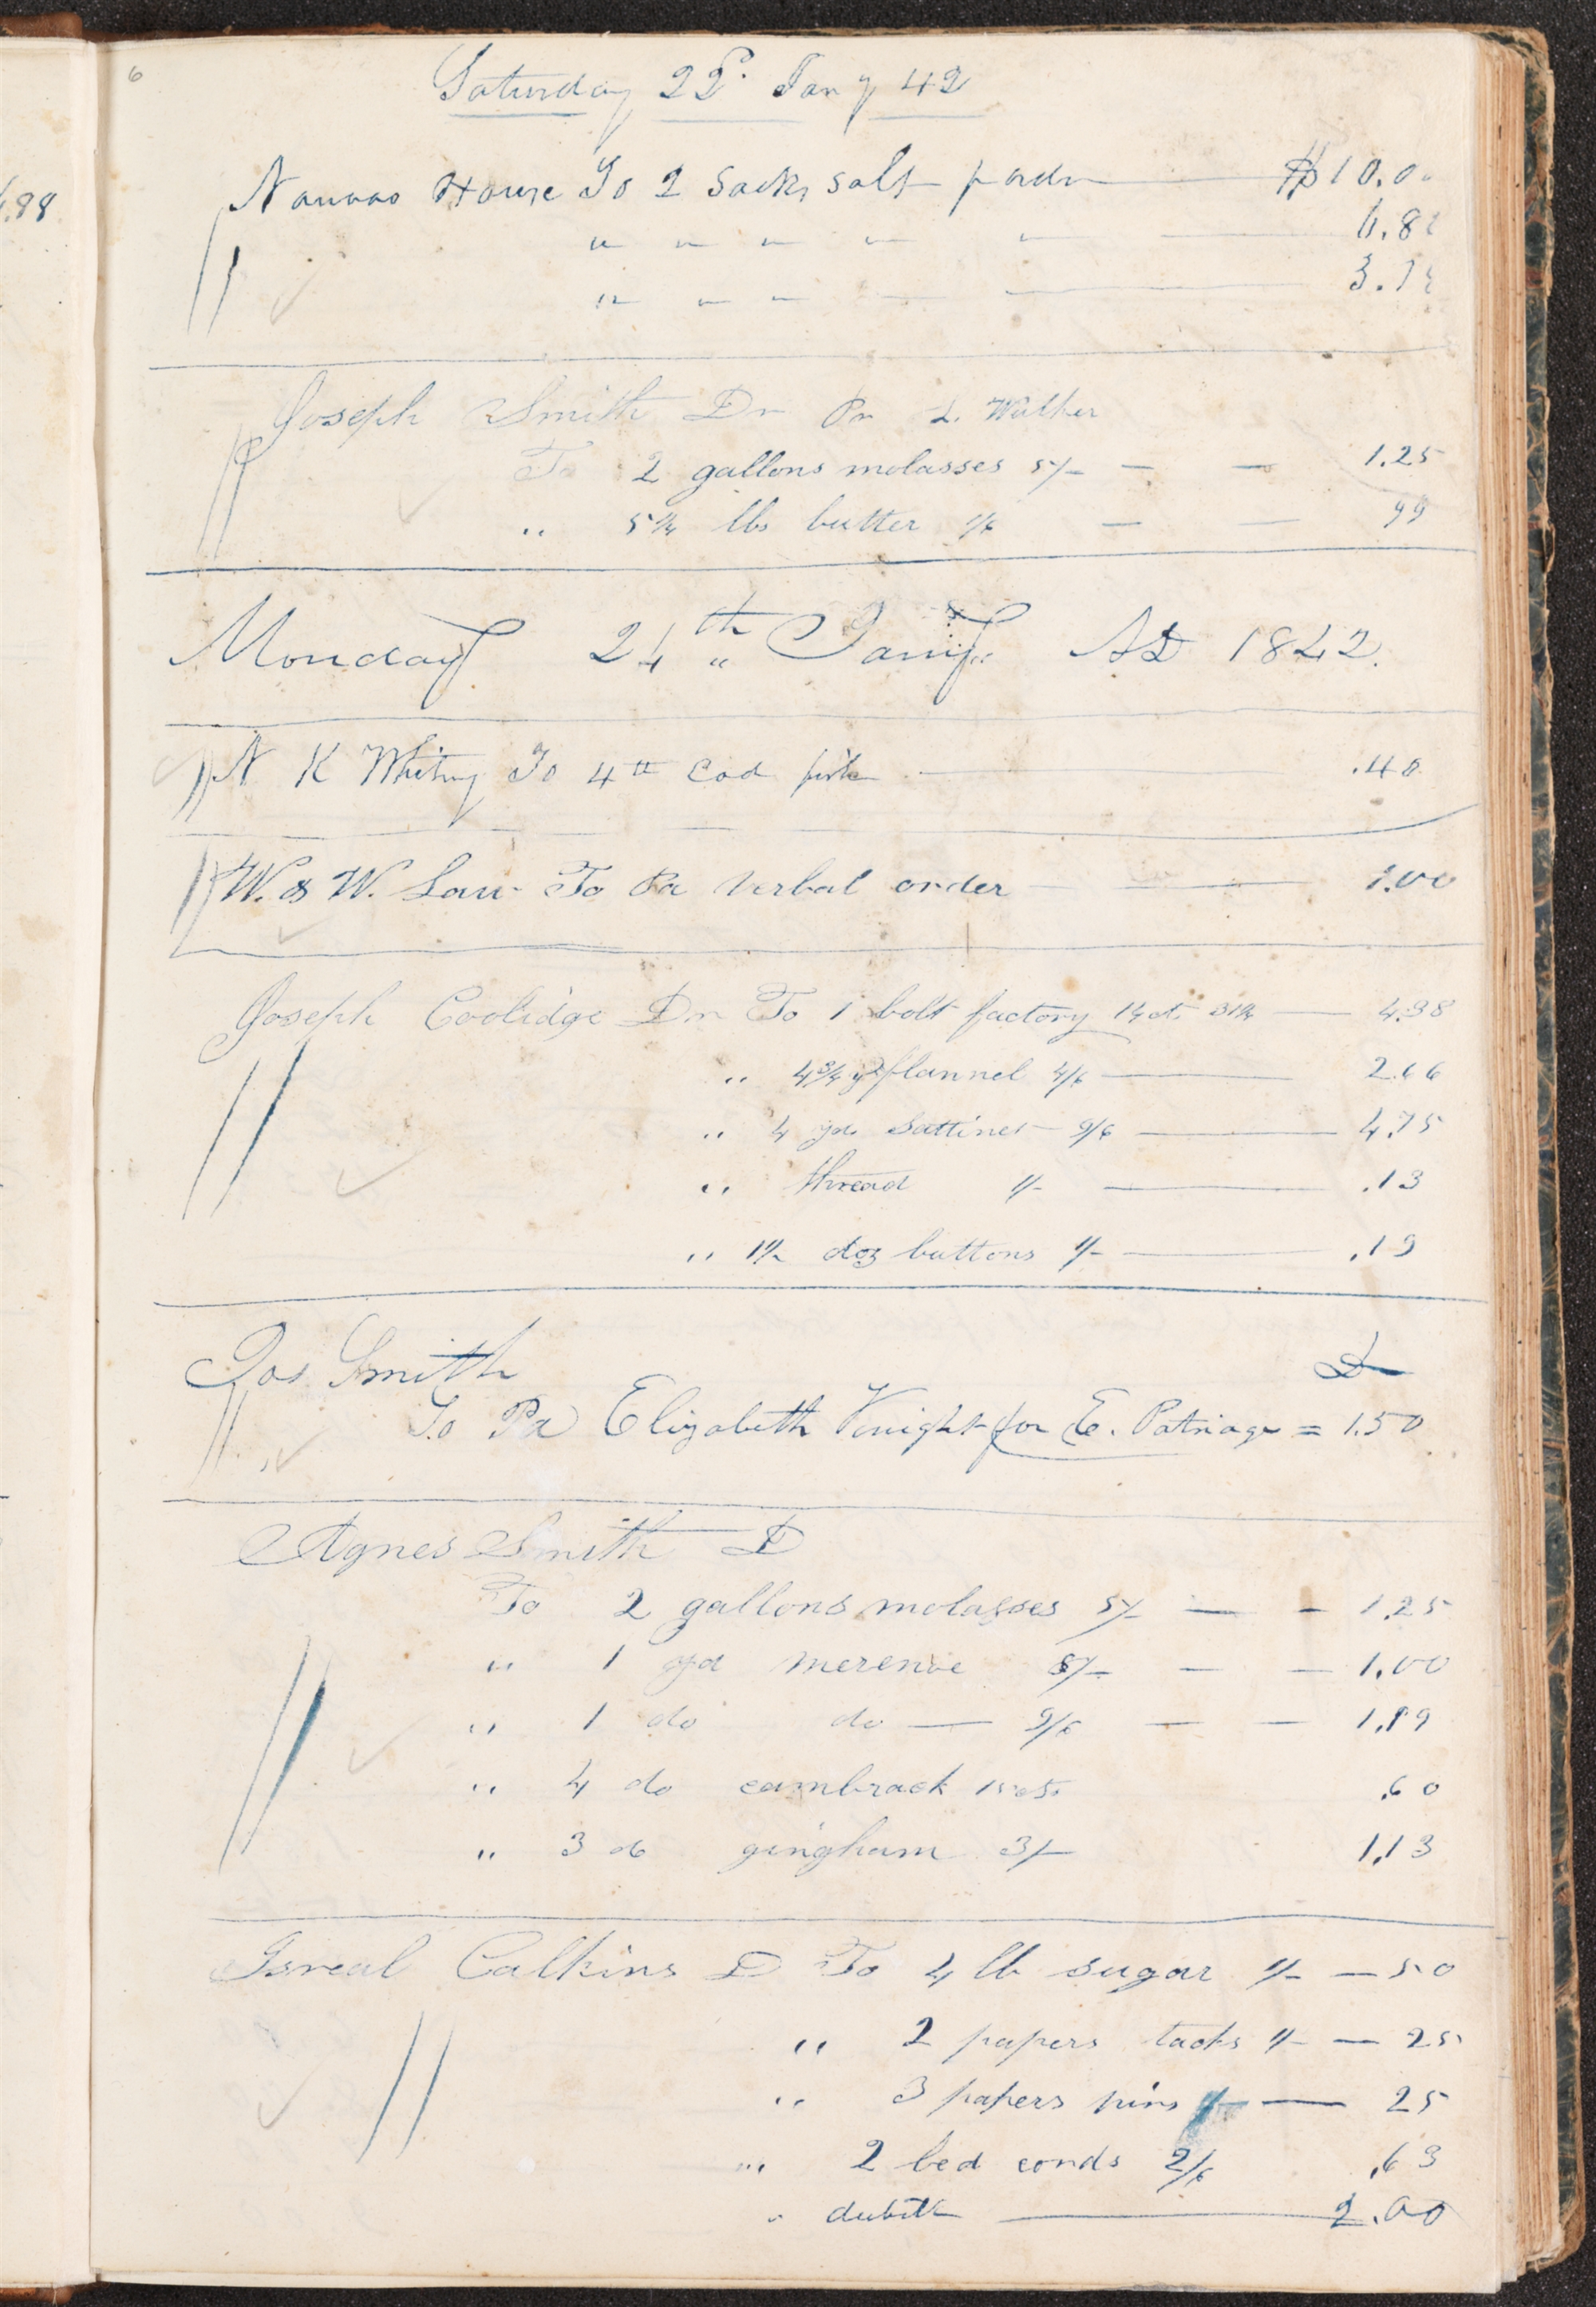 6
Saturday 22d. Jany 42
Nauvoo House To 2 Sacks salt $10.0
" " " " " 6.8
" " " 3.7
.88
Joseph Smith Dr Pr L. Walker
To 2 gallons molasses 5/- — — 1.25
" 5 1/4 lbs butter 1/6 — — 99
Monday 24th Jany AD 1842.
N K Whitney To 4 lb Cod fish — .40
W. & W. Law To Pa verbal order — 1.00
Joseph Coolidge Dr To 1 bolt factory 14 cts 31 1/4 — 4.38
" 4 3/4 yd flannel 4/6 — 2.66
" 4 yds Sattinet 9/6 — 4.75
" thread 1/- — .13
" 1 1/2 doz buttons 1/- — .19
Jos Smith D
To Pa Elizabeth Knight for E. Patriage = 1.50
Agnes Smith D
To 2 gallons molasses 5/- — — 1.25
" 1 yd merenoe 8/- — — 1.00
" 1 do do — 9/6 — — 1.19
" 4 do cambrack 15 cts .60
" 3 do gingham 3/- 1,13
Isreal Calkins D To 4 lb sugar 1/- — 50
" 2 papers tacks 1/- — 25
" 3 papers pins 1/- — 25
" 2 bed cords 2/6 .63
" — 2.00